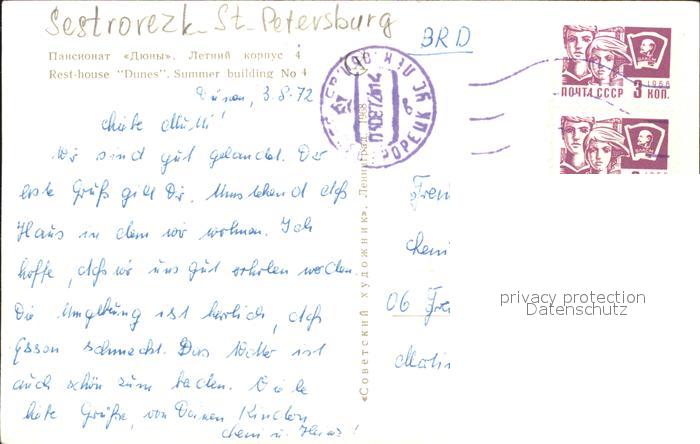 Sestrorezk St. Petersburg
BRD
Пансионат «Дюны». Летний корпус 4
Rest-house "Dunes". Summer building No 4
Dünen, 3.8.72
Liebe Mutti!
Wir sind gut gelandet. Der
erste Gruß gilt Dir. Umstehend das
Haus in dem wir wohnen. Ich
hoffe, daß wir uns gut erholen werden.
Die Umgebung ist herrlich, das
Essen schmeckt. Das Wetter ist
auch schön zum baden. Viele
liebe Grüße, von Deinen Kindern
Leni u. Heinz!
«Советский художник». Ленинград. 1968
ПОЧТА СССР 3 КОП.
1966
06
privacy protection
Datenschutz